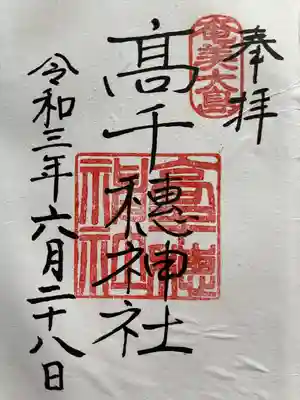 奉拝
奄美大島
髙千穂神社
髙千穂神社
令和三年六月二十八日